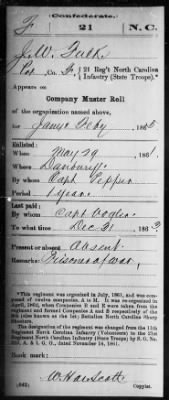 Confederate.
F 21 N.C.
J. W. Fulk
Co. F, 21 Reg't North Carolina
Infantry (State Troops).*
Appears on
Company Muster Roll
of the organization named above,
for Jany & Feby, 1865.
Enlisted:
When May 29, 1861.
Where Danbury
By whom Capt Pepper
Period 1 year
Last paid:
By whom Capt
To what time Dec 31, 186
Present or absent Absent
Remarks: Prisoner of war
*This regiment was organized in July, 1861, and was com-
posed of twelve companies, A to M. It was re-organized in
April, 1862, when Companies D and E were taken out of the
regiment and formed Companies A and B respectively of the
9th (also known as the 1st) Battalion North Carolina Sharp
Shooters.
The designation of the regiment was changed from the 11th
Regiment North Carolina Infantry (Volunteers) to the 21st
Regiment North Carolina Infantry (State Troops) by S. O. No.
A. & I. G. O., dated November 14, 1861.
Book mark:
(642)
Copyist.